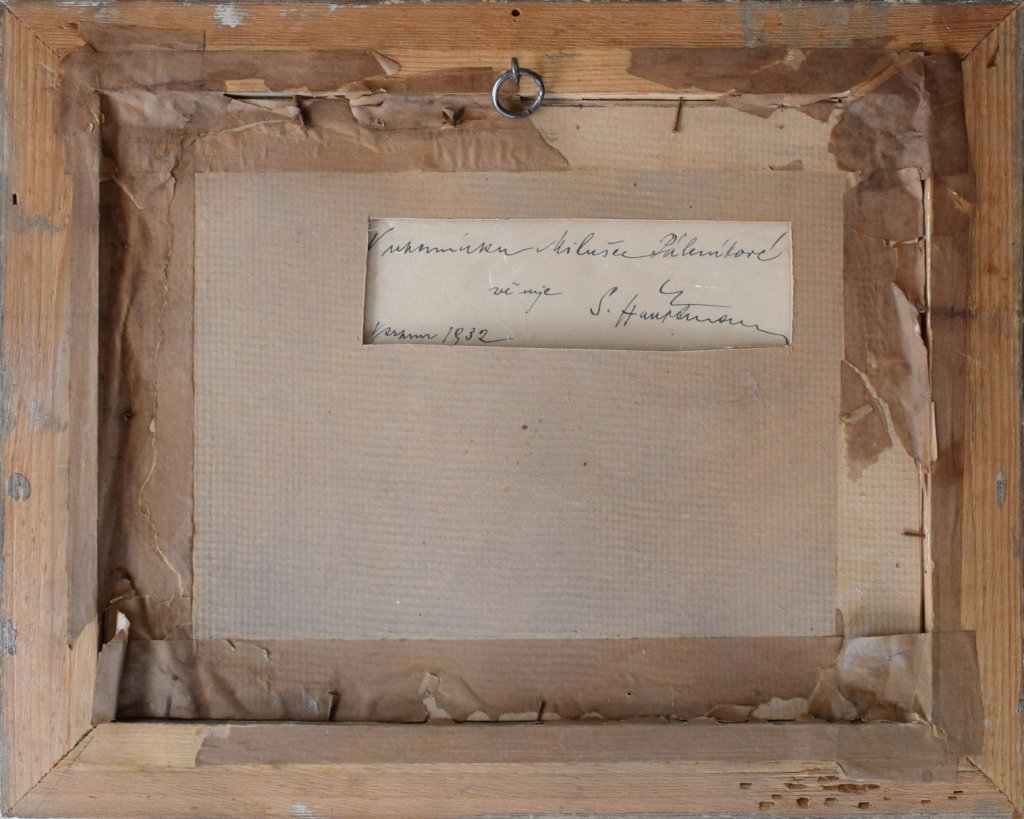 V upomínku Milušce Páleníkové
věnuje S. Hauptmann
V srpnu 1932